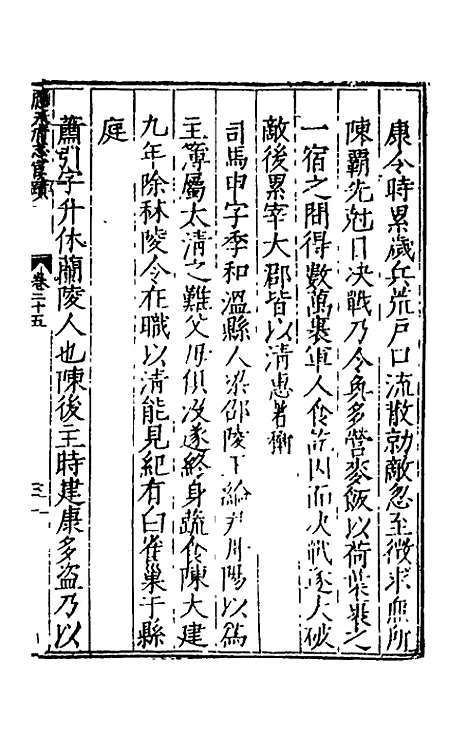 康令時累歲兵荒戸口流散勍敵忽至徴求無所
陳霸先尅日决戰乃令奐多營麥飯以荷葉裹之
一宿之間得數萬裹軍人食訖因而决戰遂大破
敵後累宰大郡皆以清惠著稱
司馬申字季和溫縣人梁邵陵王綸尹丹陽以為
主簿屬太清之難父母俱没遂終身蔬食陳大建
九年除秣陵令在職以清能見紀有白雀巢于縣
庭
蕭引字升休蘭陵人也陳後主時建康多盗乃以
應天府志宦蹟
卷二十五